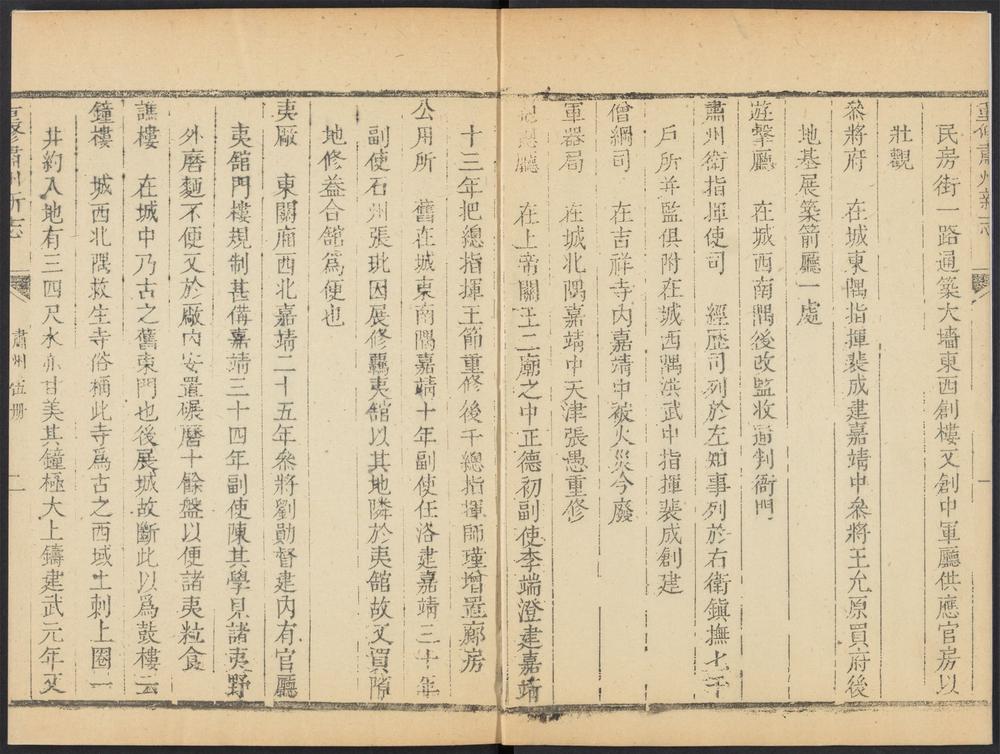 重修肅州新志
一
民房街一路通築大墻東西創樓又創中軍廳供應官房以
壯觀
叅將府 在城東隅指揮裴成建嘉靖中叅將王允原買府後
地基展築箭廳一處
遊擊廳 在城西南隅後改監收通判衙門
肅州衛指揮使司 經歷司列於左知事列於右衛鎮撫七千
戶所并監俱附在城西隅洪武中指揮裴成創建
僧綱司 在吉祥寺內嘉靖中被火災今廢
軍器局 在城北隅嘉靖中天津張愚重修
廳 在上帝關王二廟之中正德初副使李端澄建嘉靖
十三年把總指揮王節重修後千總指揮師瑾增置廊房
公用所 舊在城東南隅嘉靖十年副使任洛建嘉靖三十年
副使石州張玭因展修羈夷舘以其地隣於夷舘故又買隋
地修益合舘爲便也
夷廠 東關廂西北嘉靖二十五年叅將劉勛督建內有官廳
夷舘門樓規制甚備嘉靖三十四年副使陳其學見諸夷野
外磨麵不便又於廠內安置碾磨十餘盤以便諸夷粒食
譙樓 在城中乃古之舊東門也後展城故斷此以爲鼓樓云
鐘樓 城西北隅救生寺俗稱此寺爲古之西域土刺上圈一
井約入地有三四尺水亦甘美其鐘極大上鑄建武元年又
重修肅州新志
肅州伍册
二